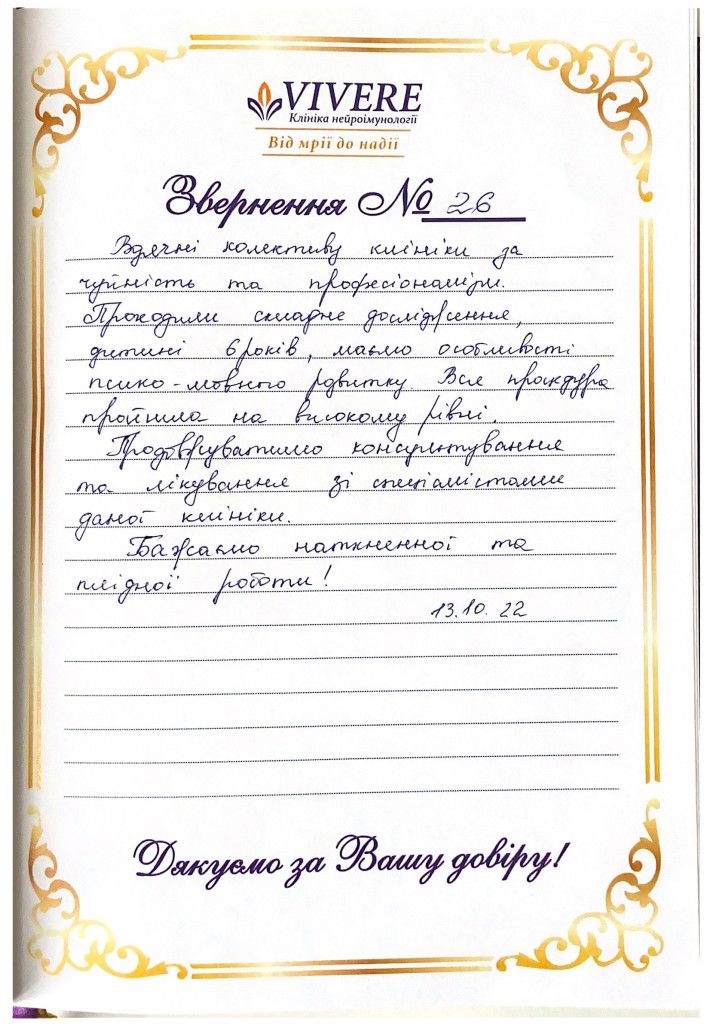 VIVERE
Клініка нейроімунології
Від мрії до надії
Звернення № 26
Вдячні колективу клініки за
чуйність та професіоналізм.
Проходили складне дослідження,
дитині 6 років, маємо особливості
психо-мовного розвитку. Вся процедура
пройшла на високому рівні.
Продовжуватимо консультування
та лікування зі спеціалістами
даної клініки.
Бажаємо наткненної та
плідної роботи!
13.10.22
Дякуємо за Вашу довіру!